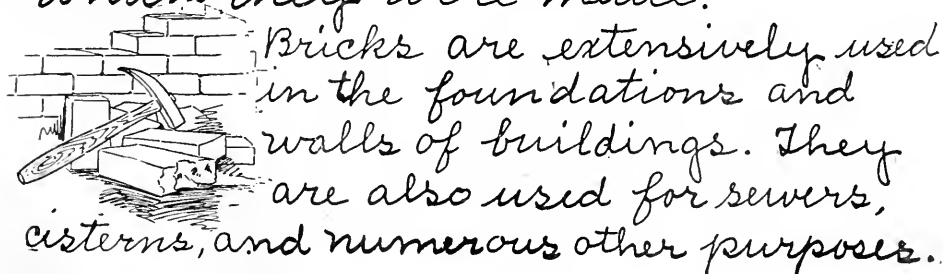 which they were made.
Bricks are extensively used
in the foundations and
walls of buildings. They
are also used for sewers,
cisterns, and numerous other purposes.